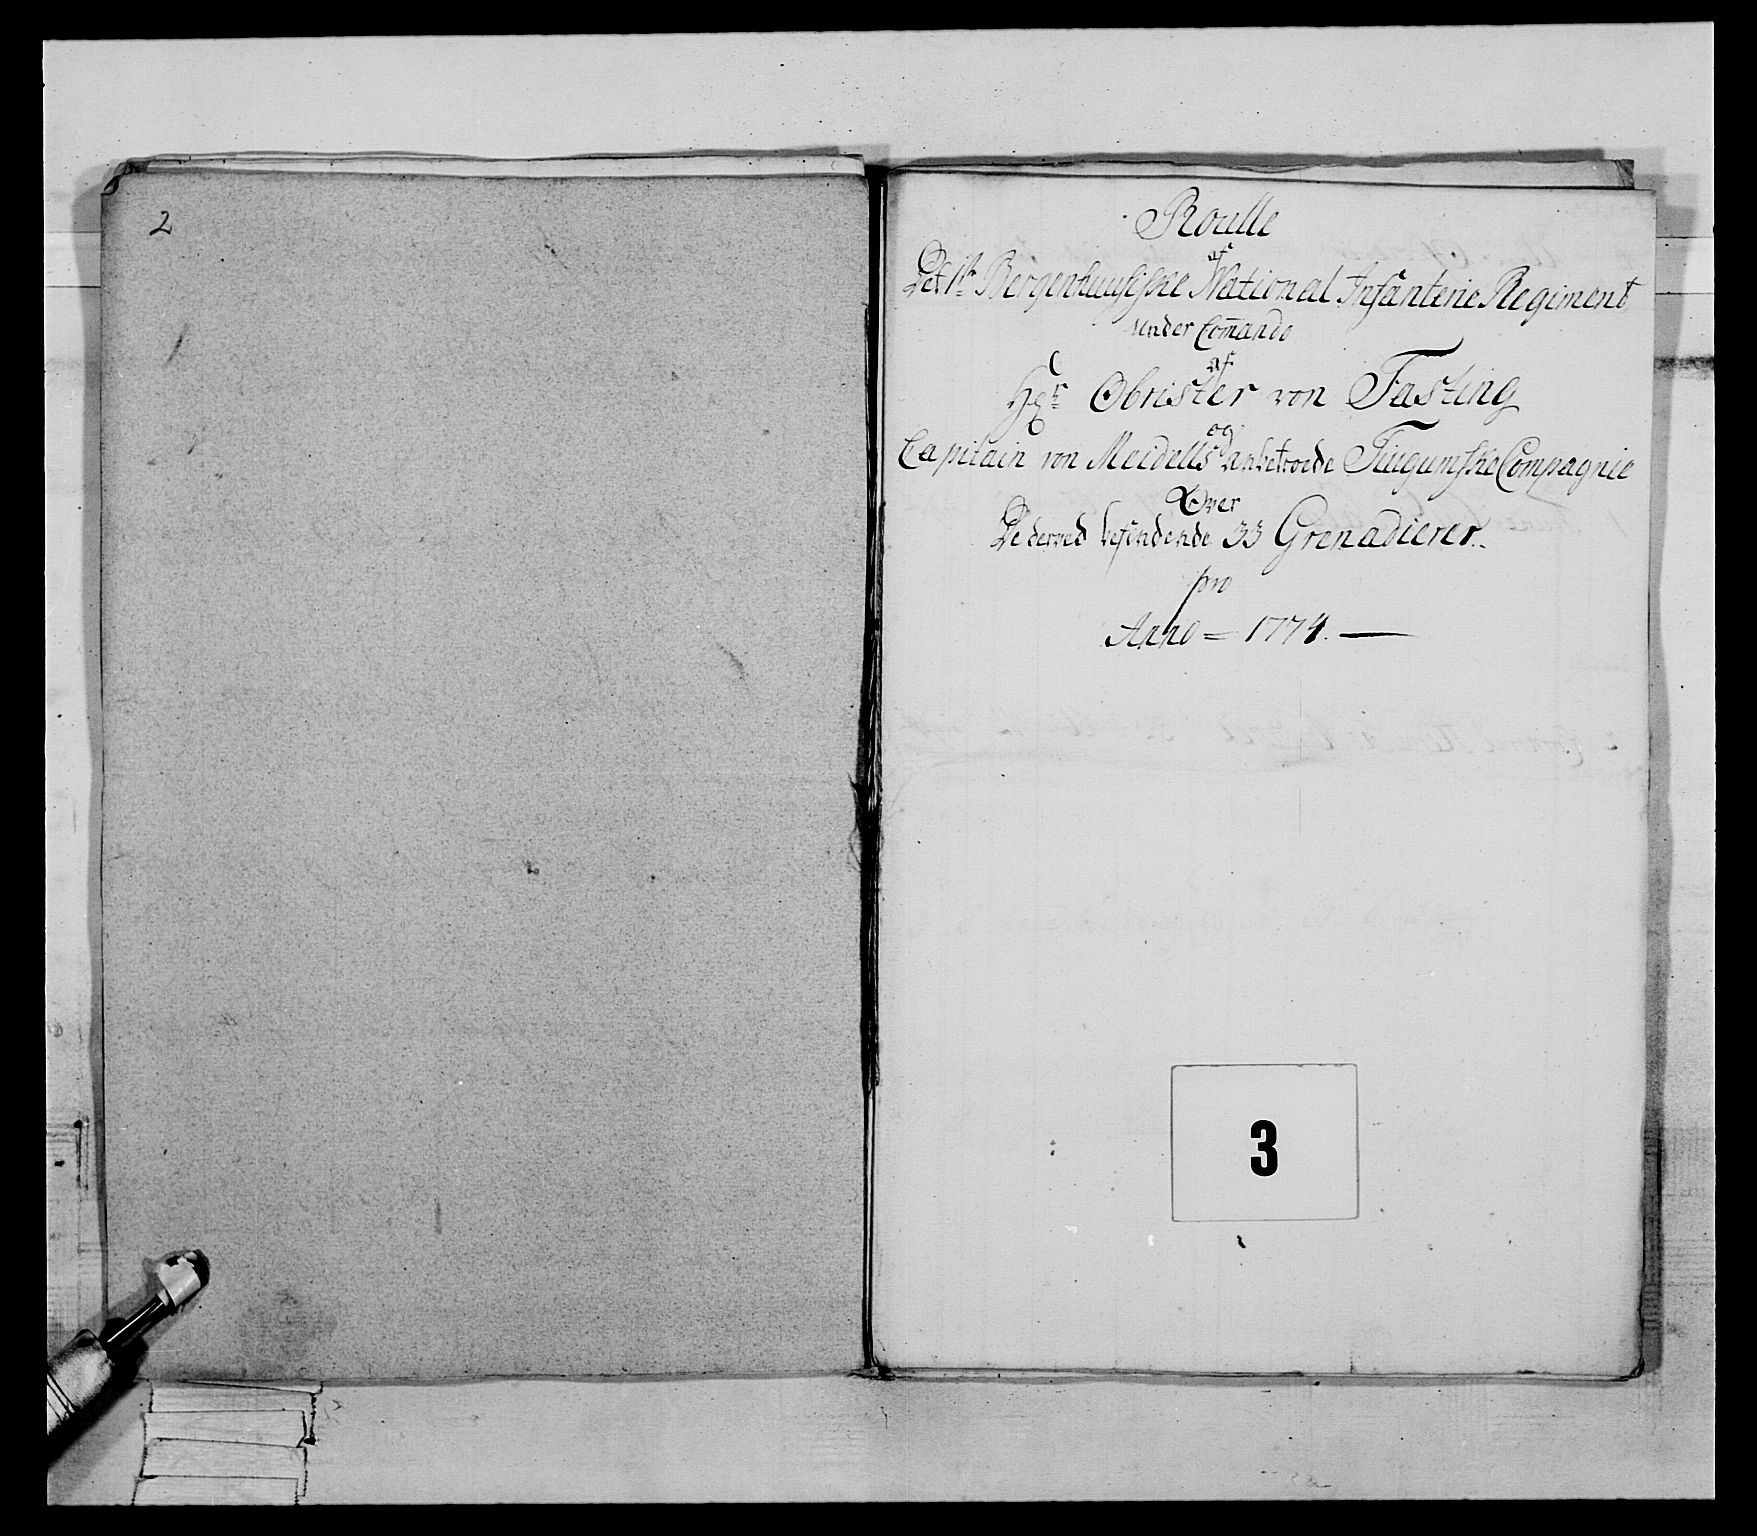 2
Roulle
af
Det 1te Bergenhuusiske National Infanterie Regiment
under Com̄ando
af
Hr Obrister von Fasting
og
Capitain von Meidells anbetroede Compagnie
Over
De derved befindende 33 Grenadierer.
pro
Anno = 1774. —
3